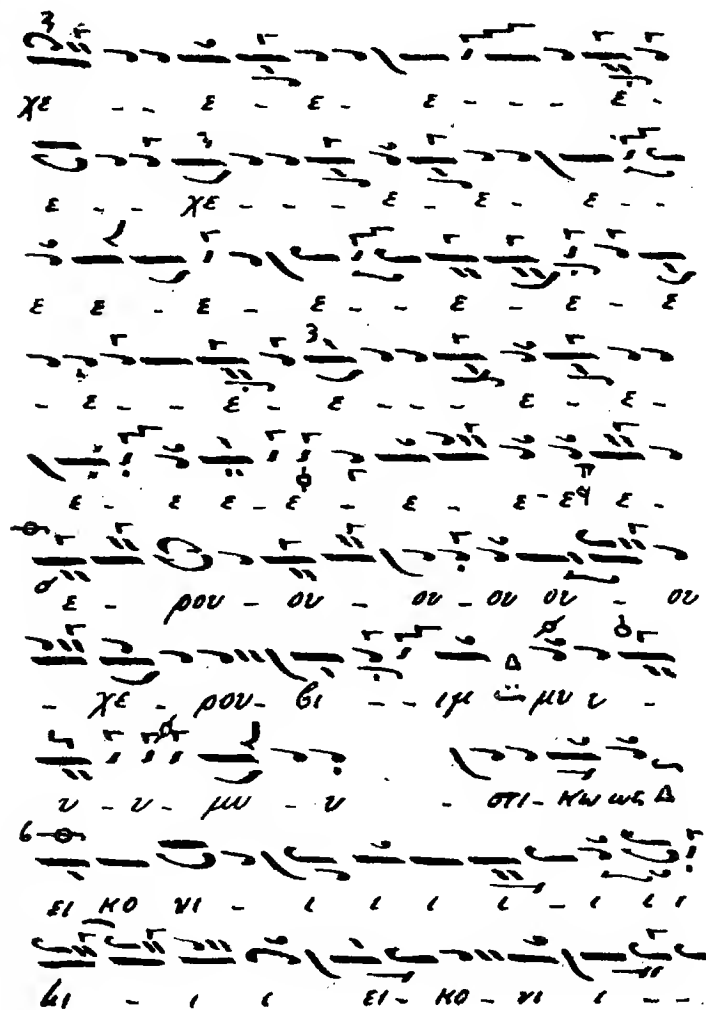 χε - - ε - ε - ε - - - - ε -
ε - - χε - - - - ε - ε - ε - -
ε ε - ε - ε - - - ε - ε - ε
- ε - - ε - ε - - - ε - ε -
ε - ε ε - ε - ε - ε - ε π ε -
ε - ρου - ου - ου - ου ου - ου
- χε - ρου - βι - - ιμ Δ μυ υ -
υ - υ - μυ - υ - στι - κω ως Δ
ει κο νι - ι ι ι ι - ι ι ι
- ι ι ει - κο - νι ι - -